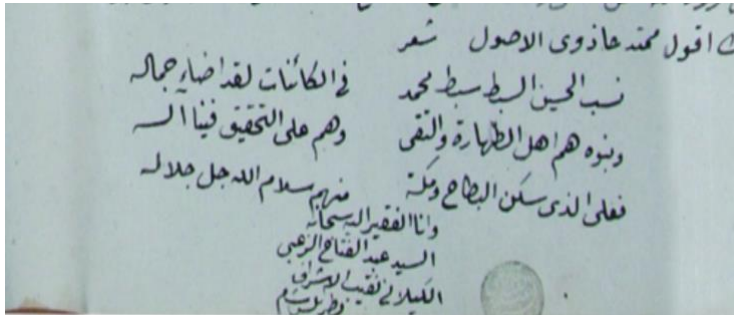 اقول ممتدحا ذوى الاصول شعر
نسب الحسين السبط سبط محمد في الكائنات لقد اضاء جماله
وبنوه هم اهل الطهارة والتقى وهم على التحقيق فينا آله
فعلى الذى سكن البطاح ومكة منهم سلام الله جل جلاله
وانا الفقير اليه سبحانه
السيد عبد الفتاح الزعبي
الكيلاني نقيب الاشراف